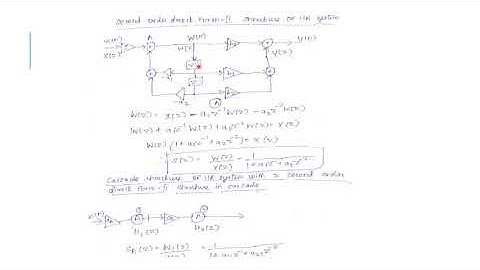 second order direct form-II structure of IIR system
x(n) A W(n) b₀ y(n)
X(z) W(z) Y(z)
z⁻¹
-a₁ b₁
z⁻¹
-a₂ b₂
A
W(z) = X(z) - a₁z⁻¹W(z) - a₂z⁻²W(z)
W(z) + a₁z⁻¹W(z) + a₂z⁻²W(z) = X(z)
W(z) (1 + a₁z⁻¹ + a₂z⁻²) = X(z)
S(z) = W(z)/X(z) = 1/(1 + a₁z⁻¹ + a₂z⁻²)
Cascade structure of IIR system with 2 second order
direct form-II structure in cascade
x(n)
H₁(z) H₂(z)
= 1/(1 + a₁z⁻¹ + a₂z⁻²)